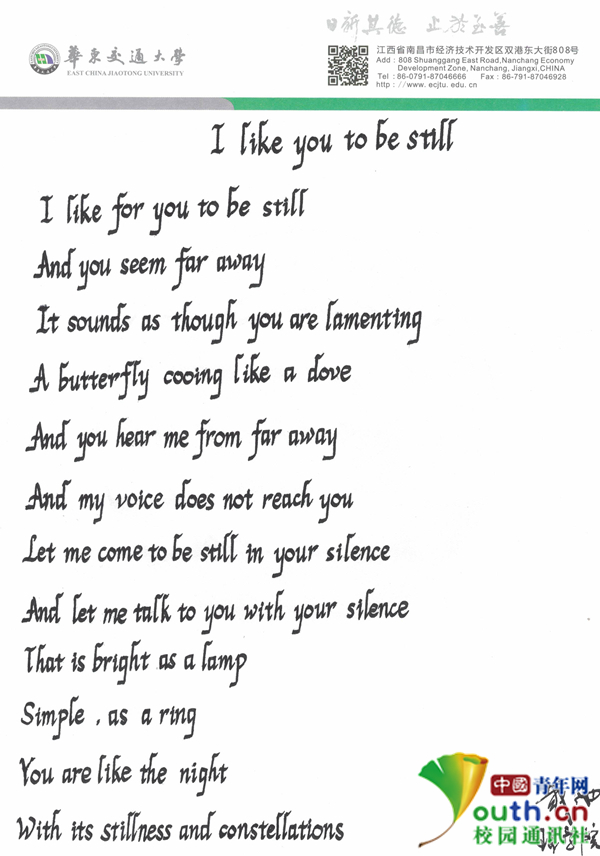 日新其德 止於至善
華東交通大學
EAST CHINA JIAOTONG UNIVERSITY
江西省南昌市经济技术开发区双港东大街808号
Add : 808 Shuanggang East Road,Nanchang Economy
Development Zone, Nanchang, Jiangxi,CHINA
Tel : 86-0791-87046666 Fax : 86-791-87046928
http : //www. ecjtu. edu. cn
I like you to be still
I like for you to be still
And you seem far away
It sounds as though you are lamenting
A butterfly cooing like a dove
And you hear me from far away
And my voice does not reach you
Let me come to be still in your silence
And let me talk to you with your silence
That is bright as a lamp
Simple , as a ring
You are like the night
With its stillness and constellations
中國青年网
Youth.cn
校园通讯社